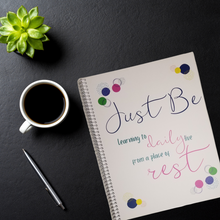 Just Be
Learning to daily live
from a place of
rest